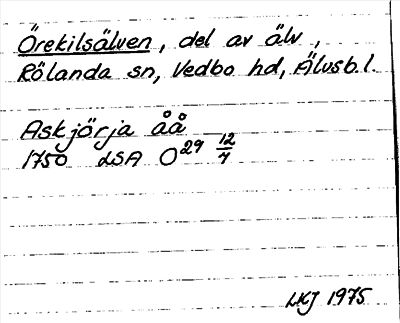 Örekilsälven, del av älv,
Rölanda sn, Vedbo hd, Älvsb. l.
Askjörja åå
1750 LSA O29 12/7
LKJ 1975